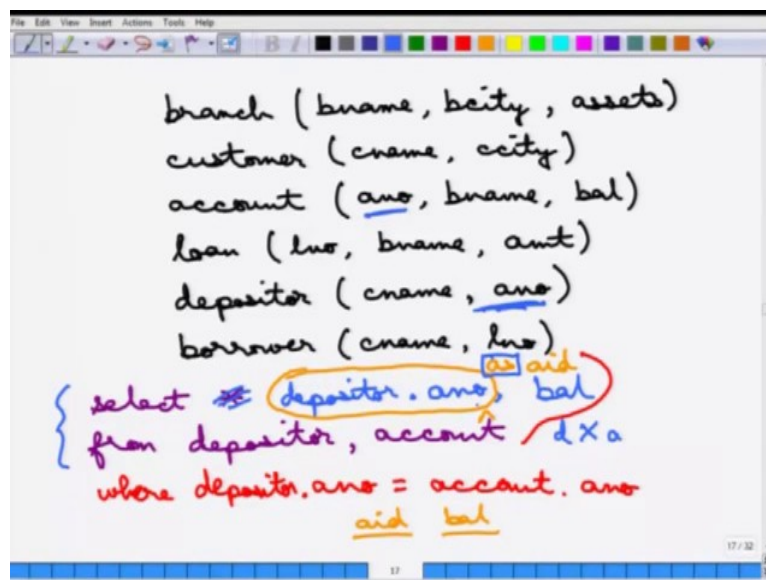 File Edit View Insert Actions Tools Help
branch (bname, bcity, assets)
customer (cname, ccity)
account (ano, bname, bal)
loan (lno, bname, amt)
depositor (cname, ano)
borrower (cname, lno)
as aid
select * depositor.ano, bal
from depositor, account d x a
where depositor.ano = account.ano
aid bal
17/32
17